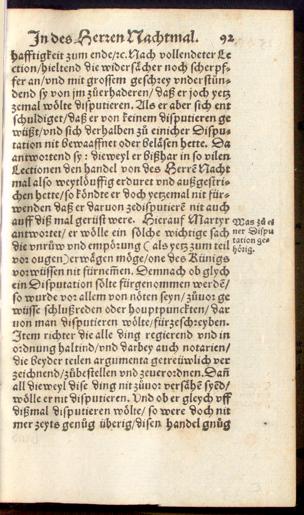 In des Herren Nachtmal. 92
hafftigkeit zum ende/ꝛc. Nach vollendeter Le
ction/hieltend die widersächer noch scherpf⸗
fer an/vnd mit grossem geschrey vnderstůn⸗
dend sy von jm zůerhaderen/daß er joch yetz
zemal wölte disputieren. Als er aber sich ent
schuldiget/daß er von keinem disputieren ge
wüßt/vnd sich derhalben zů einicher Dispu⸗
tation nit bewaaffnet oder beläsen hette. Da
antwortend sy : dieweyl er bißhar in so vilen
Lectionen den handel von des Herrē Nacht
mal also weytlöuffig erduret vnd außgestri⸗
chen hette/so köndte er doch yetzemal nit für⸗
wenden daß er daruon zedisputierē nit auch
auff diß mal gerüst were. Hierauf Martyr
antwortet/er wölle ein sölche wichtige sach
die vnrůw vnd empözung (als yetz zum teil
vor ougen) erwägen möge/one des Künigs
vorwüssen nit fürnemen. Demnach ob glych
ein Disputation sölte fürgenommen werdē/
so wurde vor allem von nöten seyn/zůuor ge
wüsse schlußreden oder houptpunckten/dar
uon man disputieren wölte/fürzeschreyben.
Item richter die alle ding regierend vnd in
ordnung haltind/vnd darbey auch notarien/
die beyder teilen argumenta getreüwlich ver
zeichnend/zůbestellen vnd zeuerordnen. Dañ
all dieweyl dise ding nit zůuor versähē syēd/
wölle er nit disputieren. Vnd ob er gleych vff
dißmal disputieren wölte/so were doch nit
mer zeyts genůg überig/disen handel gnůg
Was zů ei
ner Dispu
tation ge⸗
hörig.